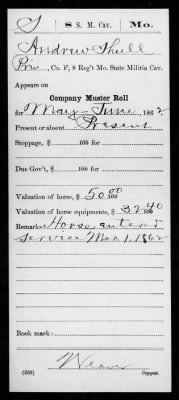 S 8 S. M. Cav. Mo.
Andrew Shull
Priv, Co. F, 8 Reg't Mo. State Militia Cav.
Appears on
Company Muster Roll
for May - June, 1862
Present or absent Present
Stoppage, $ 100 for
Due Gov't, $ 100 for
Valuation of horse, $ 50 00/100
Valuation of horse equipments, $ 32 40/100
Remarks: Horse enter'd
service Mar 1, 1862
Book mark:
Weaver
(358) Copyist.